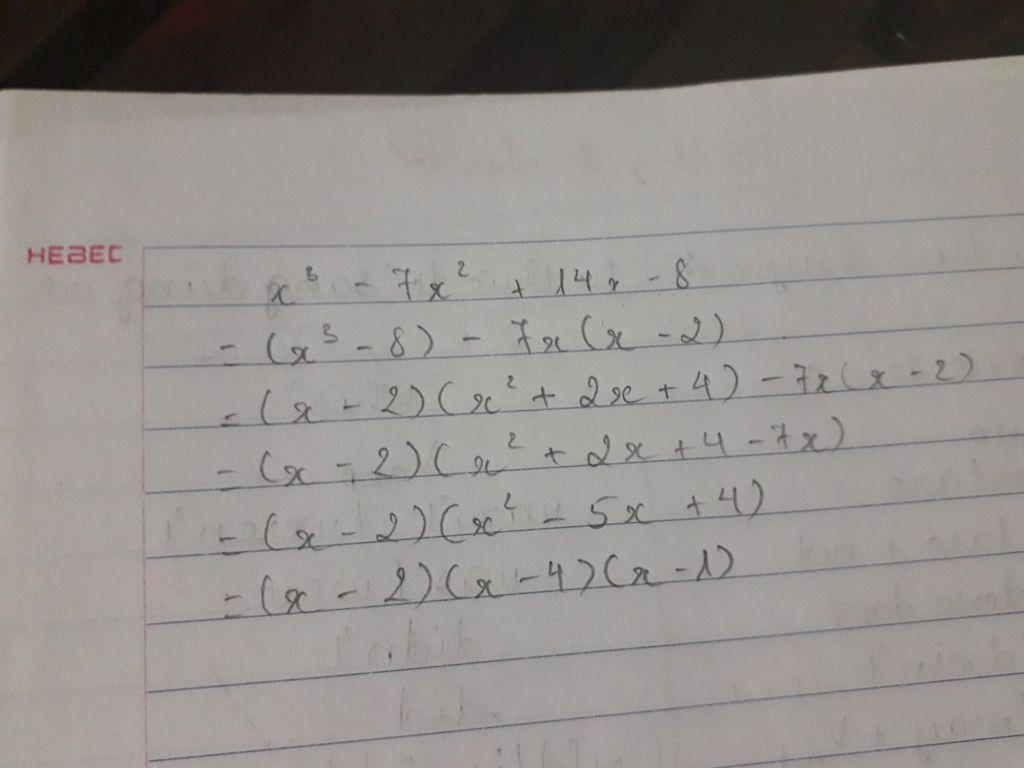 HEBEC
x³ - 7x² + 14x - 8
= (x³ - 8) - 7x(x - 2)
= (x - 2)(x² + 2x + 4) - 7x(x - 2)
= (x - 2)(x² + 2x + 4 - 7x)
= (x - 2)(x² - 5x + 4)
= (x - 2)(x - 4)(x - 1)